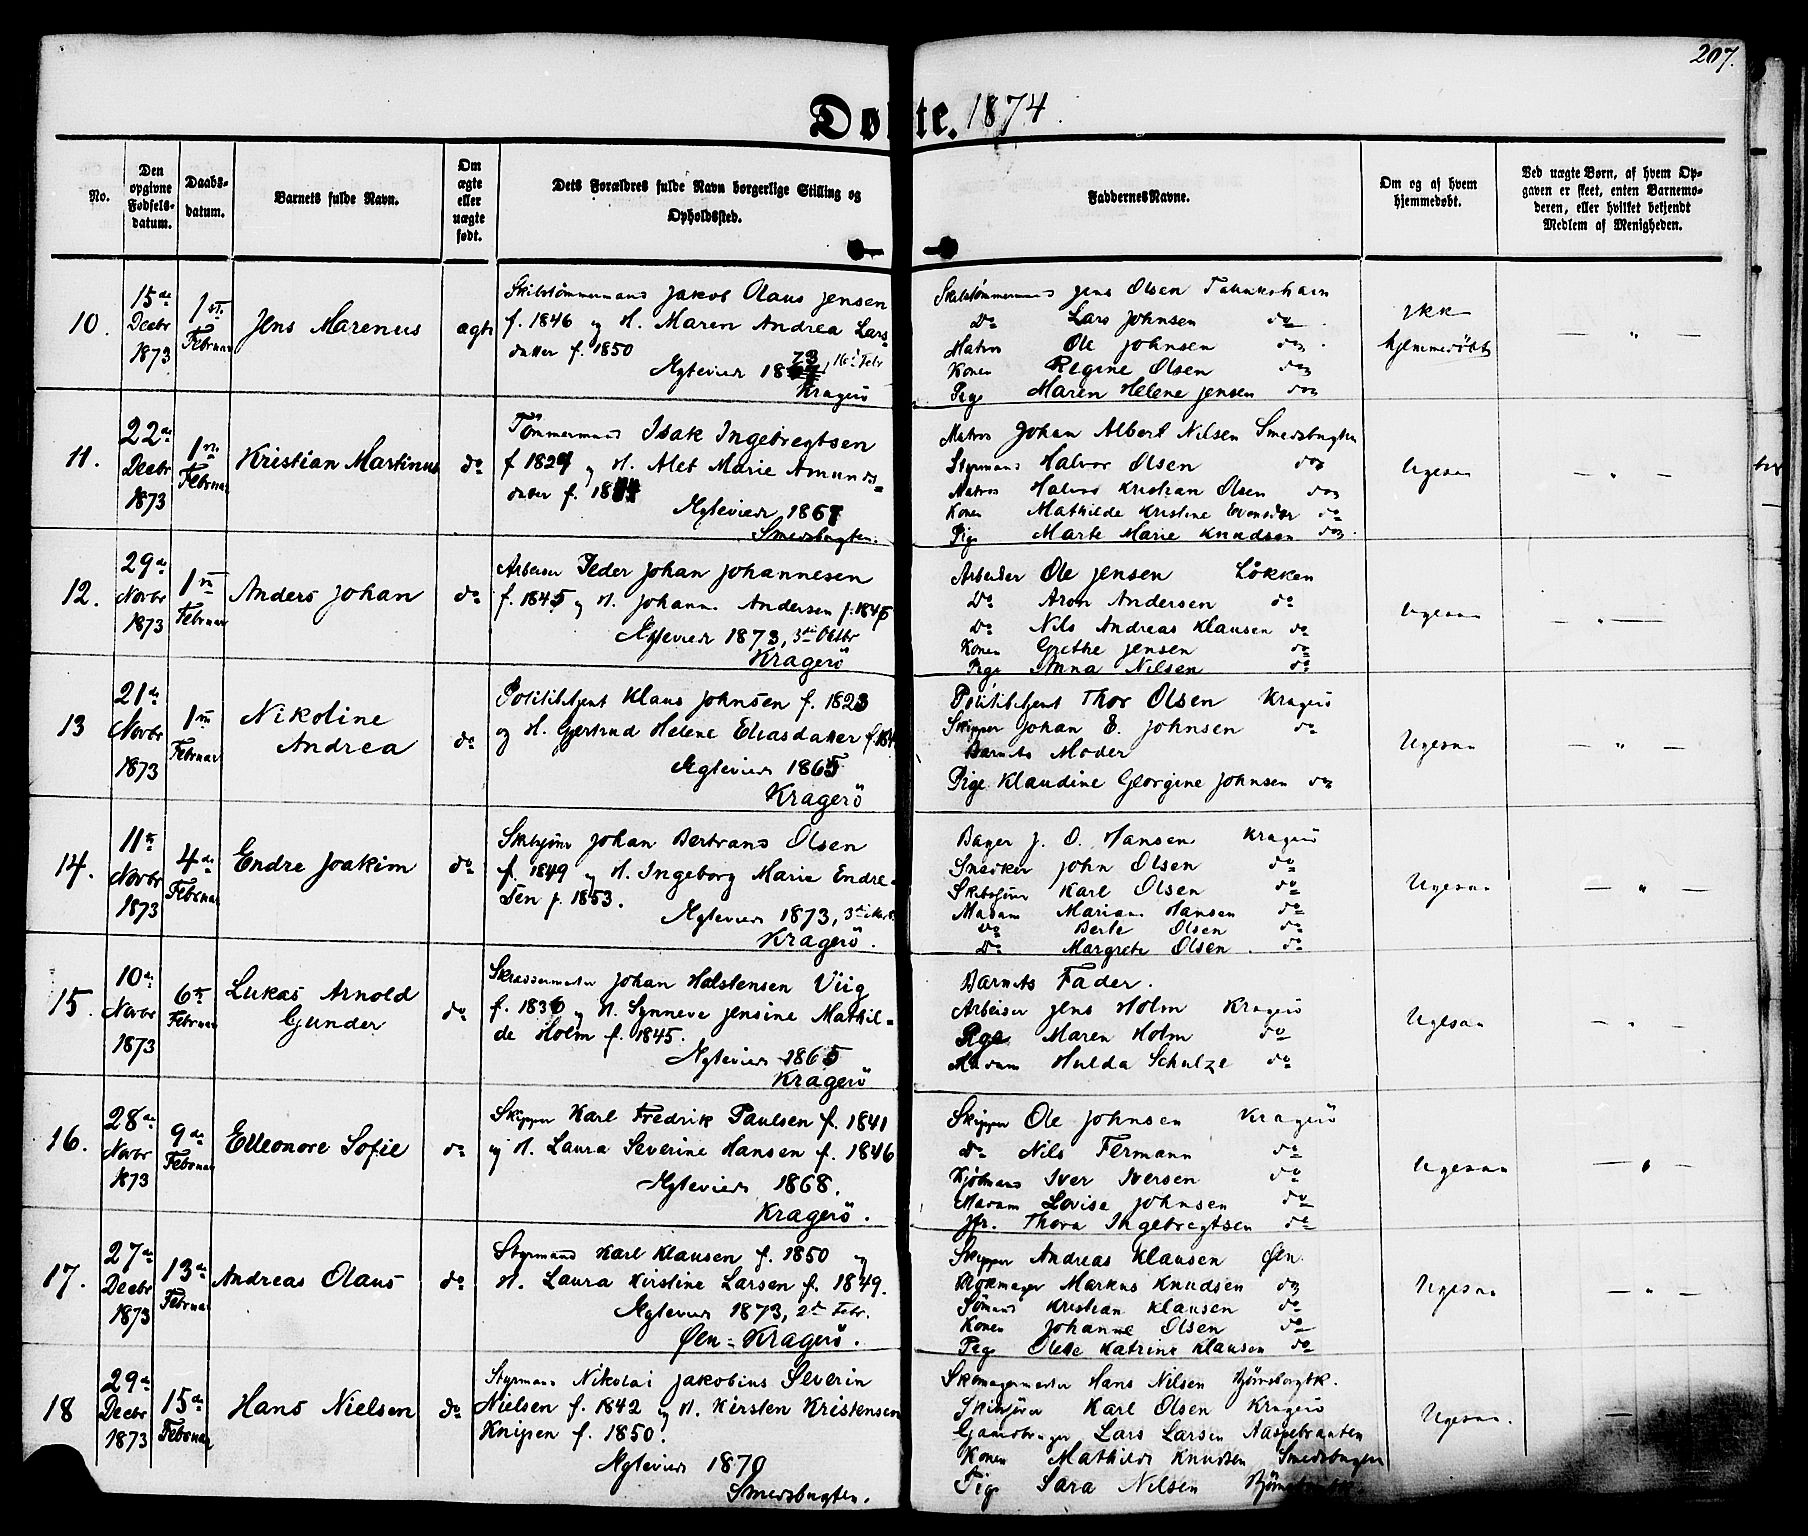 207.
Døbte. 1874.
No.
Den opgivne Fødsels-datum.
Daabs-datum.
Barnets fulde Navn.
Om ægte eller uægte født.
Dets Forældres fulde Navn borgerlige Stilling og Opholdssted.
Faddernes Navne.
Om og af hvem hjemmedøbt.
Ved uægte Børn, af hvem Opgaven er skeet, enten Barnemoderen, eller hvilket bekjendt Medlem af Menigheden.
10.
15de Decbr 1873
1ste Februar
Jens Marenus
ægte
Skibstømmermand Jakob Olaus Jensen
f. 1846 og H. Maren Andrea Lars
datter f. 1850
Ægteviede 1873, 16de Febr
Kragerö
Skibstømmermand Jens Olsen
Do Lars Johnsen do
Matros Ole Johnsen do
Konen Regine Olsen do
Pige Maren Helene Jensen do
Ikke
hjemmedöbt
— " —
11.
22de Decbr 1873
1ste Februar
Kristian Martinus
do
Tømmermand Isak Ingebregtsen
f 1827 og H. Alet Marie Amunds=
datter f. 1844
Ægteviede 1867
Smedsbugten.
Matros Johan Albert Nilsen Smedsbugten
Styrmand Halvor Olsen do
Matros Halvor Kristian Olsen do
Konen Mathilde Kristine Evensen do
Pige Marte Marie Knudsen do
Ligesaa
— " —
12.
29de Novbr 1873
1ste Februar
Anders Johan
do
Arbeider Peder Johan Johannesen
f. 1845 og H. Johanne Andersen f. 1846
Ægteviede 1873, 3die Octbr
Kragerö
Arbeider Ole Jensen Løkken
Do Aron Andersen do
Do Nils Andreas Klausen do
Konen Grethe Jensen do
Pige Anna Nilsen do
Ligesaa
— " —
13
21de Novbr 1873
1ste Februar
Nikoline
Andrea
do
Politibetjent Klaus Johnsen f. 1823
og H. Gjertrud Helene Eliasdatter f. 184
Ægteviede 1865
Kragerö
Politibetjent Thor Olsen Kragerö
Skipper Johan E. Johnsen do
Barnets Moder
Pige Klaudine Georgine Johnsen do
Ligesaa
— " —
14.
11te Novbr 1873
4de Februar
Endre Joakim
do
Johan Bertrand Olsen
f. 1849 og H. Ingeborg Marie Endre-
sen f. 1853.
Ægteviede 1873, 3die
Kragerö.
Bager J. O. Hansen Kragerö
Snedker John Olsen do
Karl Olsen do
Madam Mariane Hansen do
Do Berte Olsen do
Do Margrete Olsen. do
Ligesaa
— " —
15.
10de Novbr 1873
6te Februar
Lukas Arnold
Gunder
do
Skræddermester Johan Halstensen Viig
f. 1836 og H. Synneve Jensine Mathil=
de Holm f. 1845.
Ægteviede 1865
Kragerö
Barnets Fader.
Arbeider Jens Holm Kragerö
Pige Maren Holm do
Madam Hulda Schulze do
Ligesaa
— " —
16.
28de Novbr 1873
9de Februar
Elleonore Sofie
do
Skipper Karl Fredrik Paulsen f. 1841
og H. Laura Severine Hansen f. 1846
Ægteviede 1868.
Kragerö.
Skipper Ole Johnsen Kragerö
Do Nils Fermann do
Kjøbmand Iver Iversen do
Madam Lovise Johnsen do
Jfr. Thora Ingebregtsen do
Ligesaa
— " —
17.
27de Decbr 1873
13de Februar
Andreas Olaus
do
Styrmand Karl Klausen f. 1850 og
H. Laura Kirstine Larsen f. 1849.
Ægteviede 1873, 2de Febr.
Øen = Kragerö.
Skipper Andreas Klausen Øen.
Blokmager Markus Knudsen do
Sömand Kristian Klausen do
Konen Johanne Olsen do
Pige Olede Katrine Klausen do
Ligesaa
— " —
18
29de Decbr 1873
15de Februar
Hans Nielsen
do
Styrmand Nikolai Jakobius Severin
Nielsen f. 1842 og H. Kirsten Kristensen
Knipen f. 1850.
Ægteviede 1870
Smedsbugten.
Skomagermester Hans Nilsen
Karl Olsen Kragerö
Gaardbruger Lars Larsen
Konen Mathilde Knudsen Smedsbugten
Pige Sara Nilsen
Ligesaa.
—